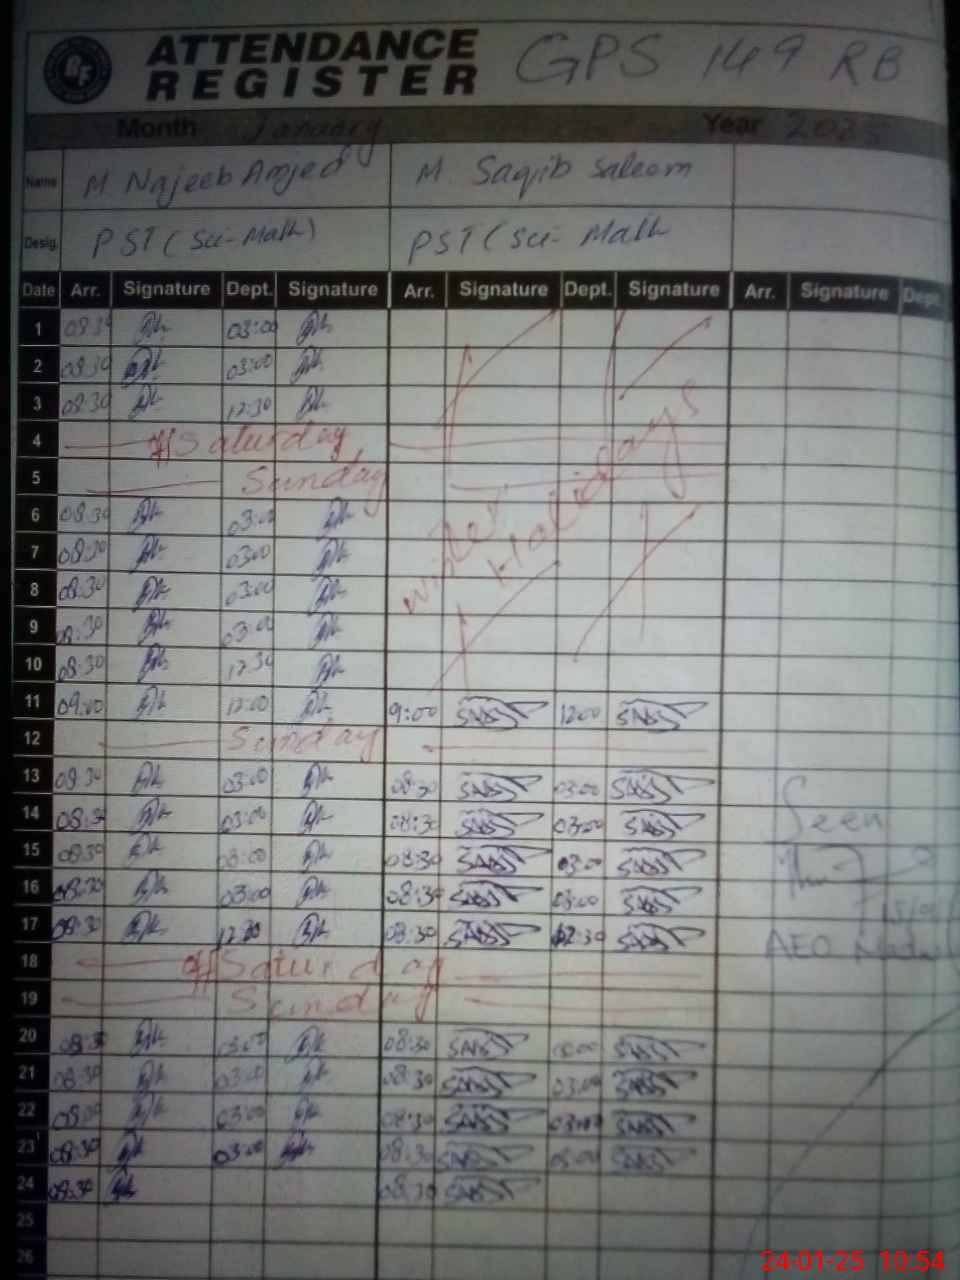 ATTENDANCE
REGISTER
GPS 149 RB
Month January Year 2025
Name M Najeeb Amjed M Saqib Saleem
Desig. PST (Sci-Math) PST (Sci- Math
Date Arr. Signature Dept. Signature Arr. Signature Dept. Signature Arr. Signature Dept.
1 08:30 03:00
2 08:30 03:00
3 08:30 12:30
4 Saturday
5 Sunday
winter Holidays
6 08:30 03:00
7 08:30 03:00
8 08:30 03:00
9 08:30 03:00
10 08:30 12:30
11 09:00 12:00 9:00 12:00
12 Sunday
13 08:30 03:00 08:30 03:00
14 08:30 03:00 08:30 03:00
Seen
15 08:30 03:00 08:30 03:00
16 08:30 03:00 08:30 03:00
17 08:30 12:30 08:30 12:30
AEO
18 Saturday
19 Sunday
20 08:30 03:00 08:30 03:00
21 08:30 03:00 08:30 03:00
22 03:00 08:30 03:00
23 08:30 03:00 08:30 03:00
24 08:30 08:30
25
26
24-01-25 10:54